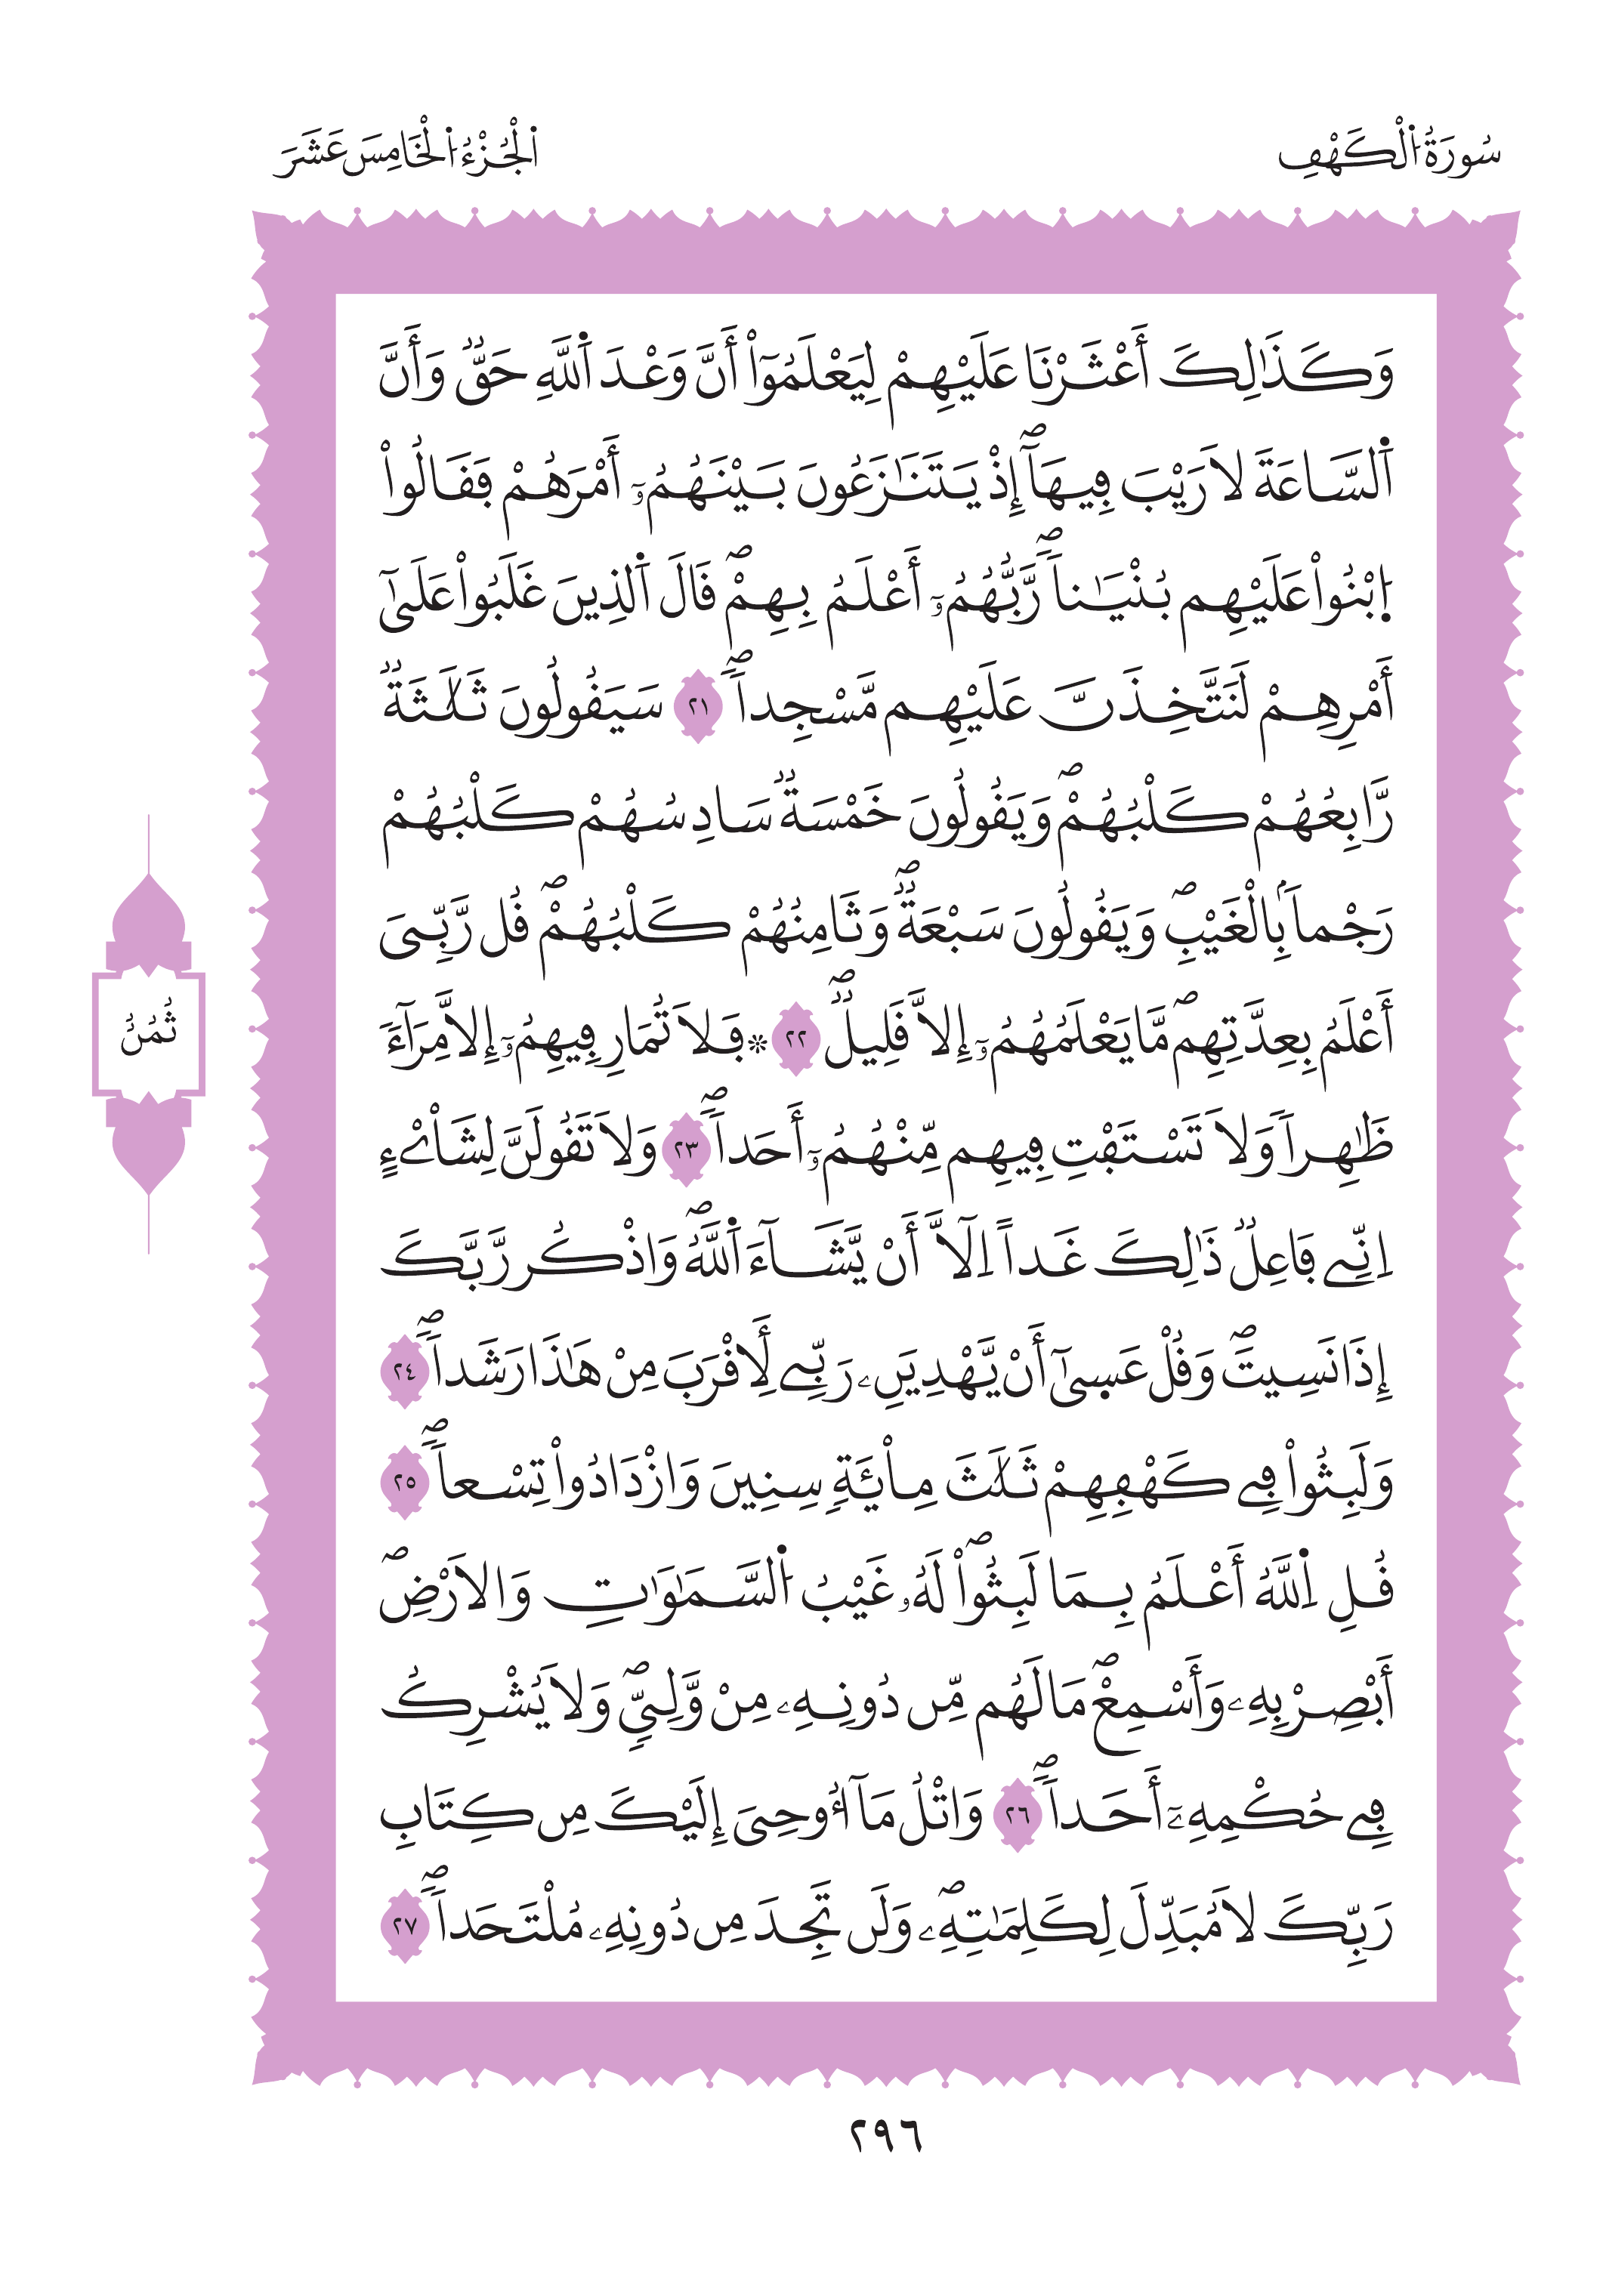 سُورَةُ اُ۬لْكَهْفِ
اَ۬لْجُزْءُ اُ۬لْخَامِسَ عَشَرَ
وَكَذَٰلِكَ أَعْثَرْنَا عَلَيْهِمْ لِيَعْلَمُوٓاْ أَنَّ وَعْدَ اَ۬للَّهِ حَقّٞ وَأَنَّ
اَ۬لسَّاعَةَ لَا رَيْبَ فِيهَآۖ إِذْ يَتَنَٰزَعُونَ بَيْنَهُمُۥٓ أَمْرَهُمْ فَقَالُواْ
اُ۪بْنُواْ عَلَيْهِم بُنْيَٰناٗۖ رَّبُّهُمُۥٓ أَعْلَمُ بِهِمْۖ قَالَ اَ۬لذِينَ غَلَبُواْ عَلَىٰٓ
أَمْرِهِمْ لَنَتَّخِذَنَّ عَلَيْهِم مَّسْجِداٗۖ ٢١ سَيَقُولُونَ ثَلَٰثَةٞ
رَّابِعُهُمْ كَلْبُهُمْۖ وَيَقُولُونَ خَمْسَةٞ سَادِسُهُمْ كَلْبُهُمْ
رَجْماَۢ بِالْغَيْبِۖ وَيَقُولُونَ سَبْعَةٞۖ وَثَامِنُهُمْ كَلْبُهُمْۖ قُل رَّبِّىَ
أَعْلَمُ بِعِدَّتِهِمۖ مَّا يَعْلَمُهُمُۥٓ إِلَّا قَلِيلٞۖ ٢٢ ۞ فَلَا تُمَارِ فِيهِمُۥٓ إِلَّا مِرَآءٗ
ظَٰهِراٗ وَلَا تَسْتَفْتِ فِيهِم مِّنْهُمُۥٓ أَحَداٗۖ ٢٣ وَلَا تَقُولَنَّ لِشَاْےْءٍ
اِنِّے فَاعِلٞ ذَٰلِكَ غَداً اِلَّآ أَنْ يَّشَآءَ اَ۬للَّهُۖ وَاذْكُر رَّبَّكَ
إِذَا نَسِيتَۖ وَقُلْ عَس۪ىٰٓ أَنْ يَّهْدِيَنِۦ رَبِّے لِأَقْرَبَ مِنْ هَٰذَا رَشَداٗۖ ٢٤
وَلَبِثُواْ فِے كَهْفِهِمْ ثَلَٰثَ مِاْئَةٖ سِنِينَ وَازْدَادُواْ تِسْعاٗۖ ٢٥
قُلِ اِ۬للَّهُ أَعْلَمُ بِمَا لَبِثُواْۖ لَهُۥ غَيْبُ اُ۬لسَّمَٰوَٰتِ وَالَارْضِۖ
أَبْصِرْ بِهِۦ وَأَسْمِعْۖ مَا لَهُم مِّن دُونِهِۦ مِنْ وَّلِيّٖۖ وَلَا يُشْرِكُ
فِے حُكْمِهِۦٓ أَحَداٗۖ ٢٦ وَاتْلُ مَآ أُوحِىَ إِلَيْكَ مِن كِتَابِ
رَبِّكَ لَا مُبَدِّلَ لِكَلِمَٰتِهِۦۖ وَلَن تَجِدَ مِن دُونِهِۦ مُلْتَحَداٗۖ ٢٧
ثُمُنُ
٢٩٦